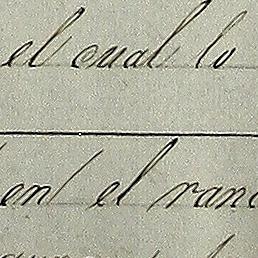 el cual lo
en el ran